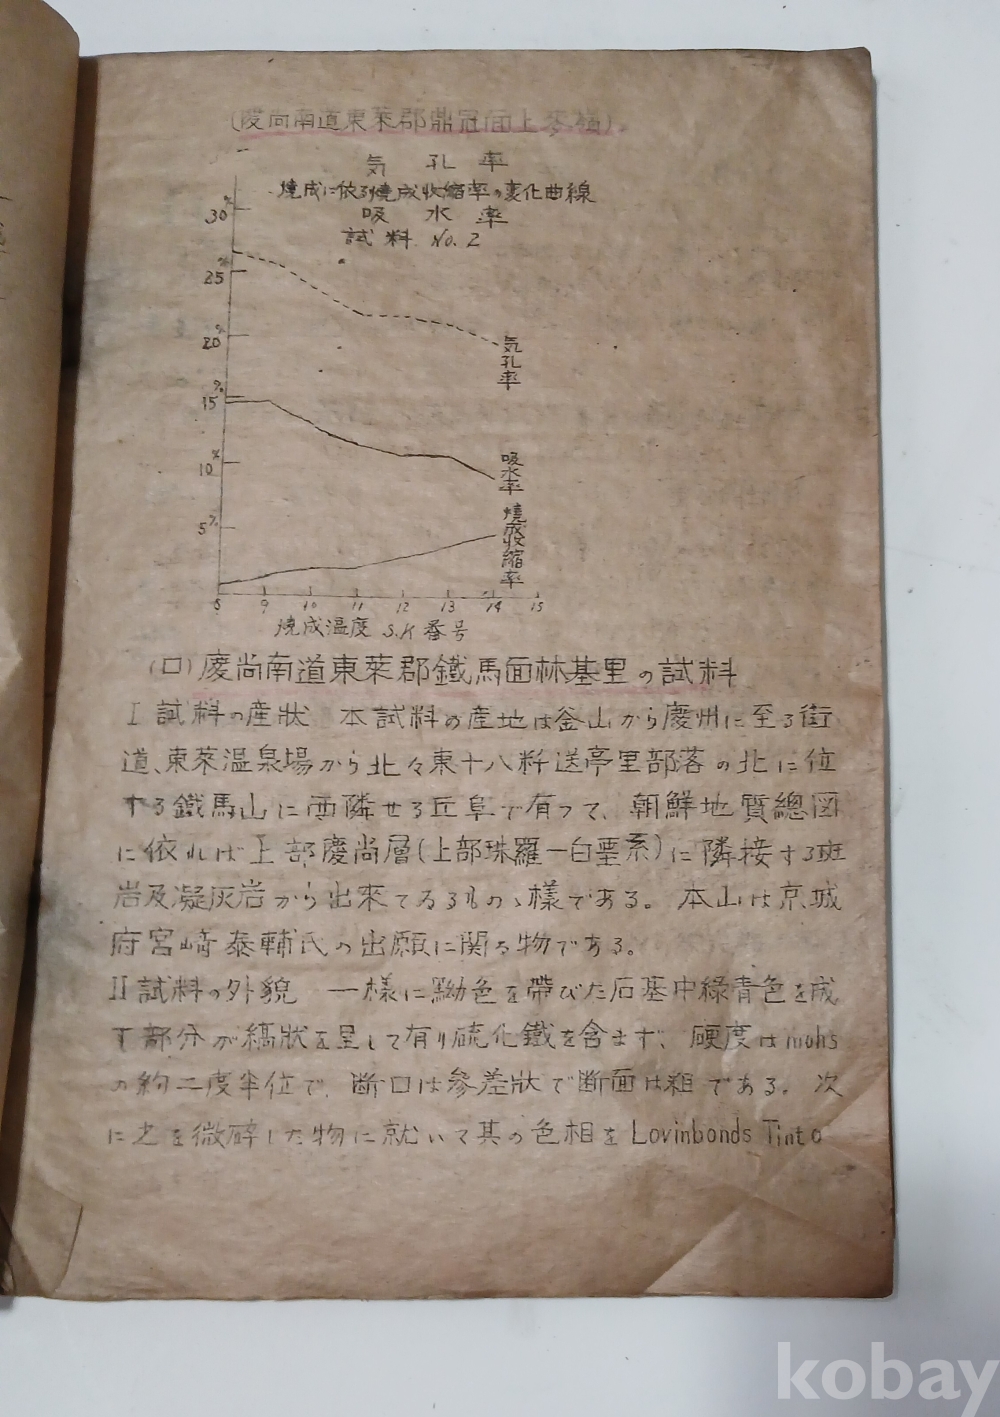 (慶尚南道東萊郡鼎冠面上
気孔率
焼成に依る焼成收縮率の変化曲線
吸水率
試料 No. 2
30%
25%
20%
15%
10%
5%
気孔率
吸水率
焼成收縮率
8 9 10 11 12 13 14 15
焼成温度 S.K番号
(ロ)慶尚南道東萊郡鐵馬面林基里の試料
I 試料の産狀 本試料の産地は釜山から慶州に至る街
道、東萊温泉場から北々東十八粁送亭里部落の北に位
する鐵馬山に西隣せる丘阜で有つて、朝鮮地質總図
に依れば上部慶尚層(上部珠羅一白堊系)に隣接する玢
岩及凝灰岩から出來てゐるものゝ樣である。本山は京城
府宮崎泰輔氏の出願に関る物である。
II 試料の外貌 一樣に黝色を帶びた石基中綠青色を成
す部分が縞狀を呈して有り硫化鐵を含まず、硬度はmohs
の約二度半位で、断口は參差狀で断面は粗である。次
に之を微碎した物に就いて其の色相を Lovinbonds Tinto
kobay